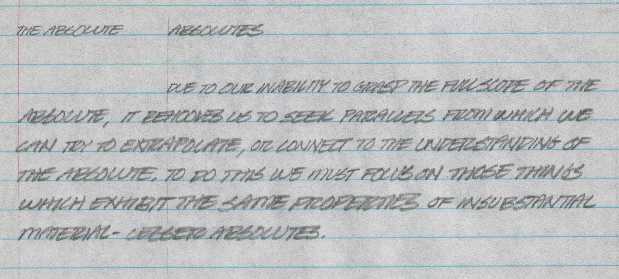 THE ABSOLUTE ABSOLUTES
DUE TO OUR INABILITY TO GRASP THE FULL SCOPE OF THE
ABSOLUTE, IT BEHOOVES US TO SEEK PARALLELS FROM WHICH WE
CAN TRY TO EXTRAPOLATE, OR CONNECT TO THE UNDERSTANDING OF
THE ABSOLUTE. TO DO THIS WE MUST FOCUS ON THOSE THINGS
WHICH EXHIBIT THE SAME PROPERTIES OF INSUBSTANTIAL
MATERIAL - LESSER ABSOLUTES.